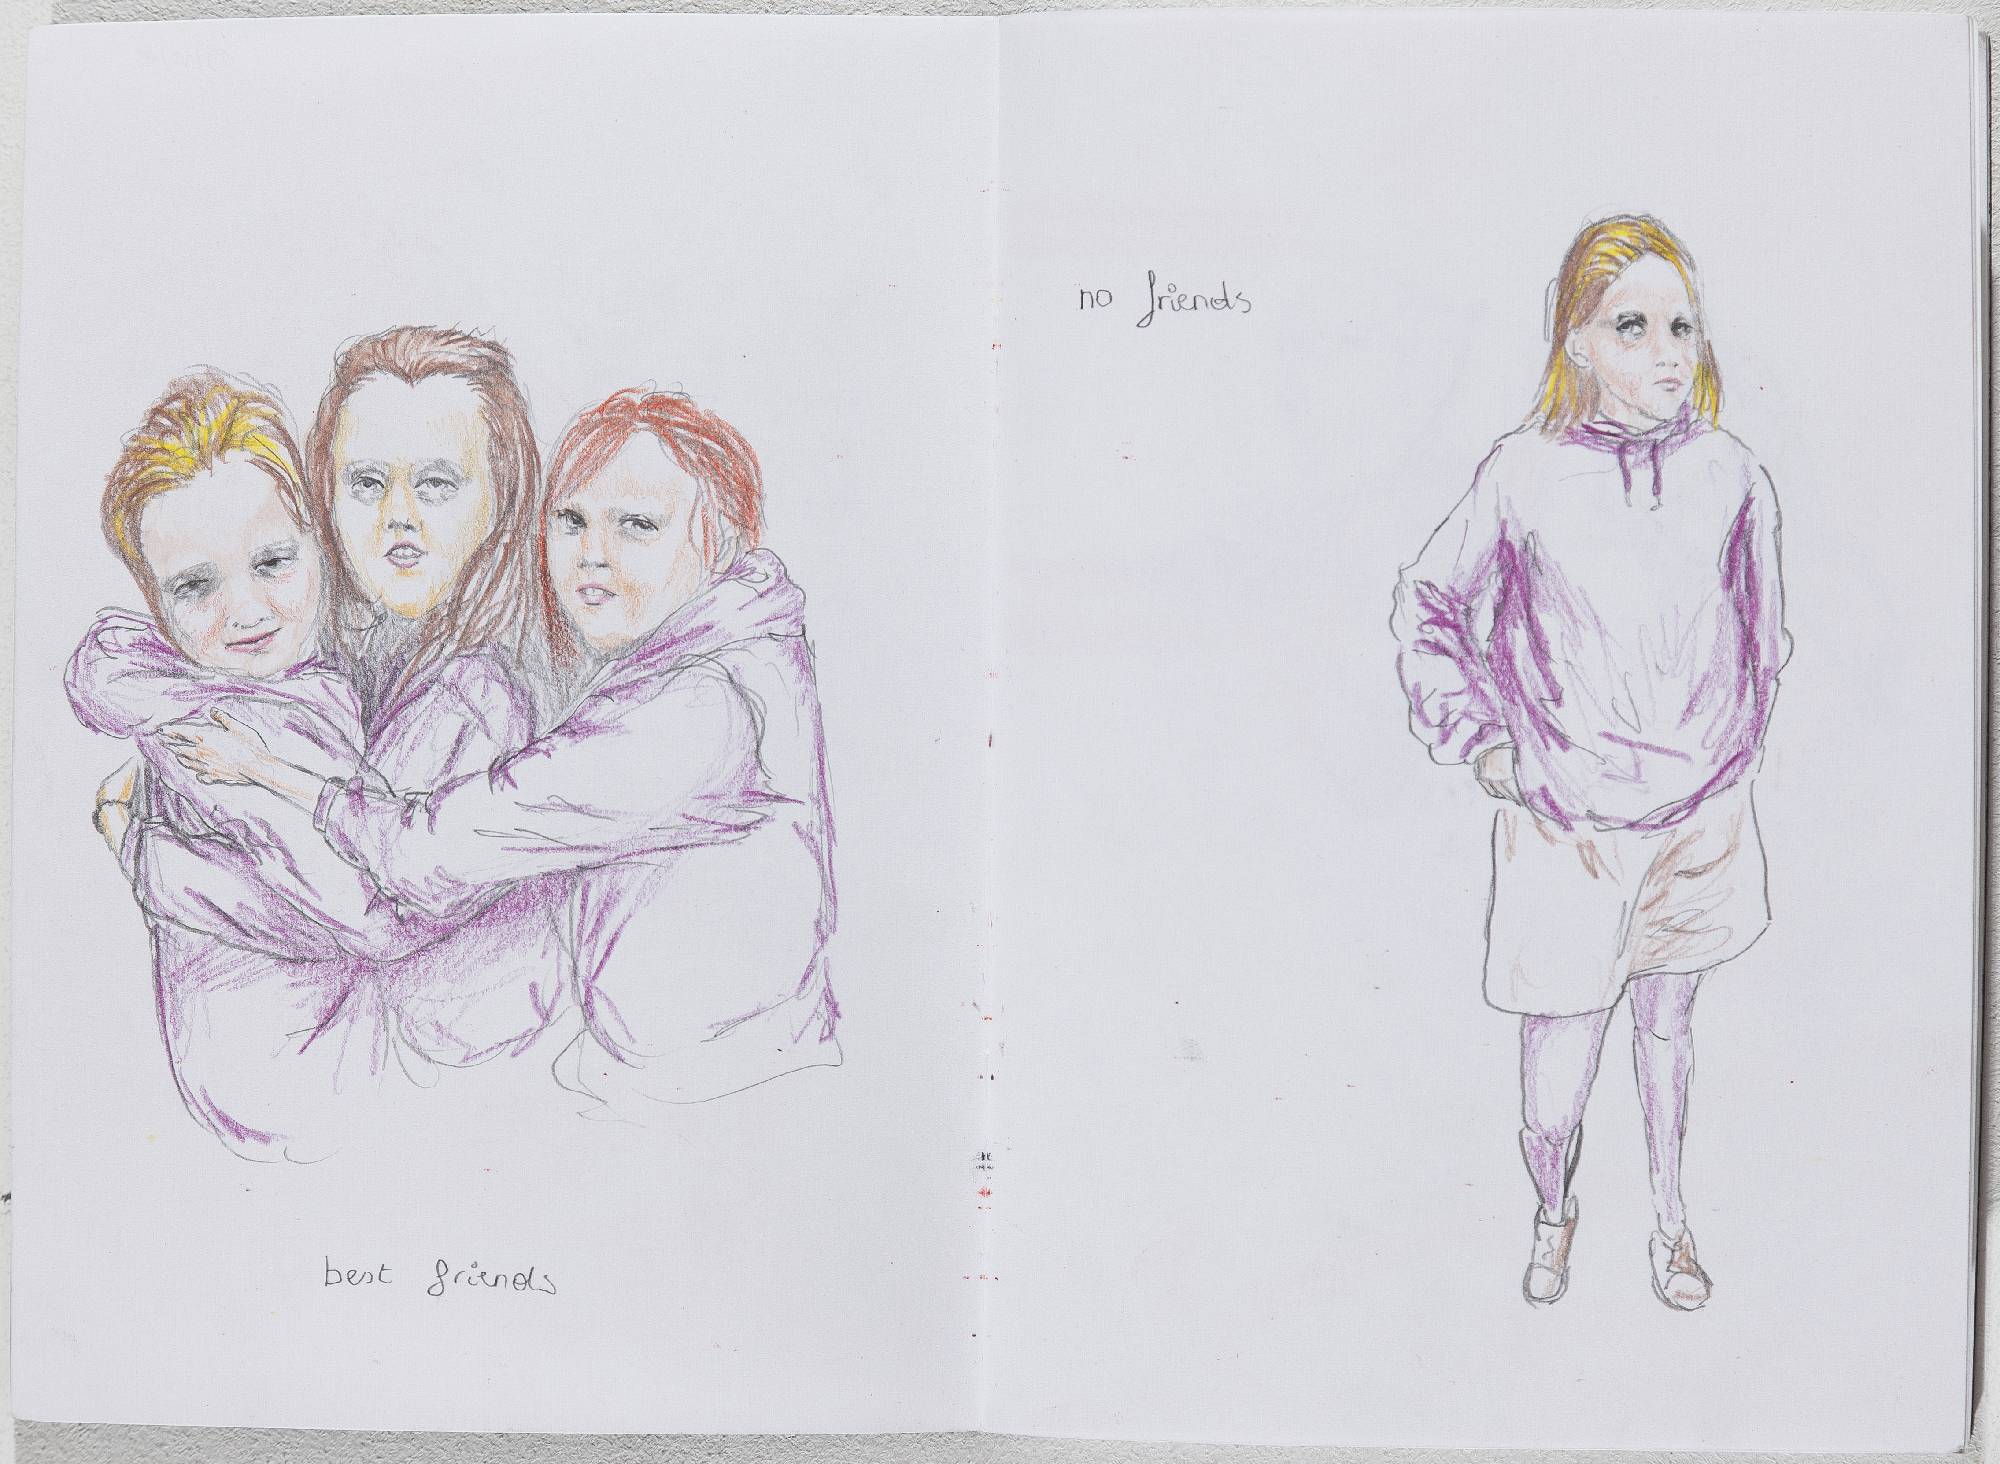 best friends
no friends